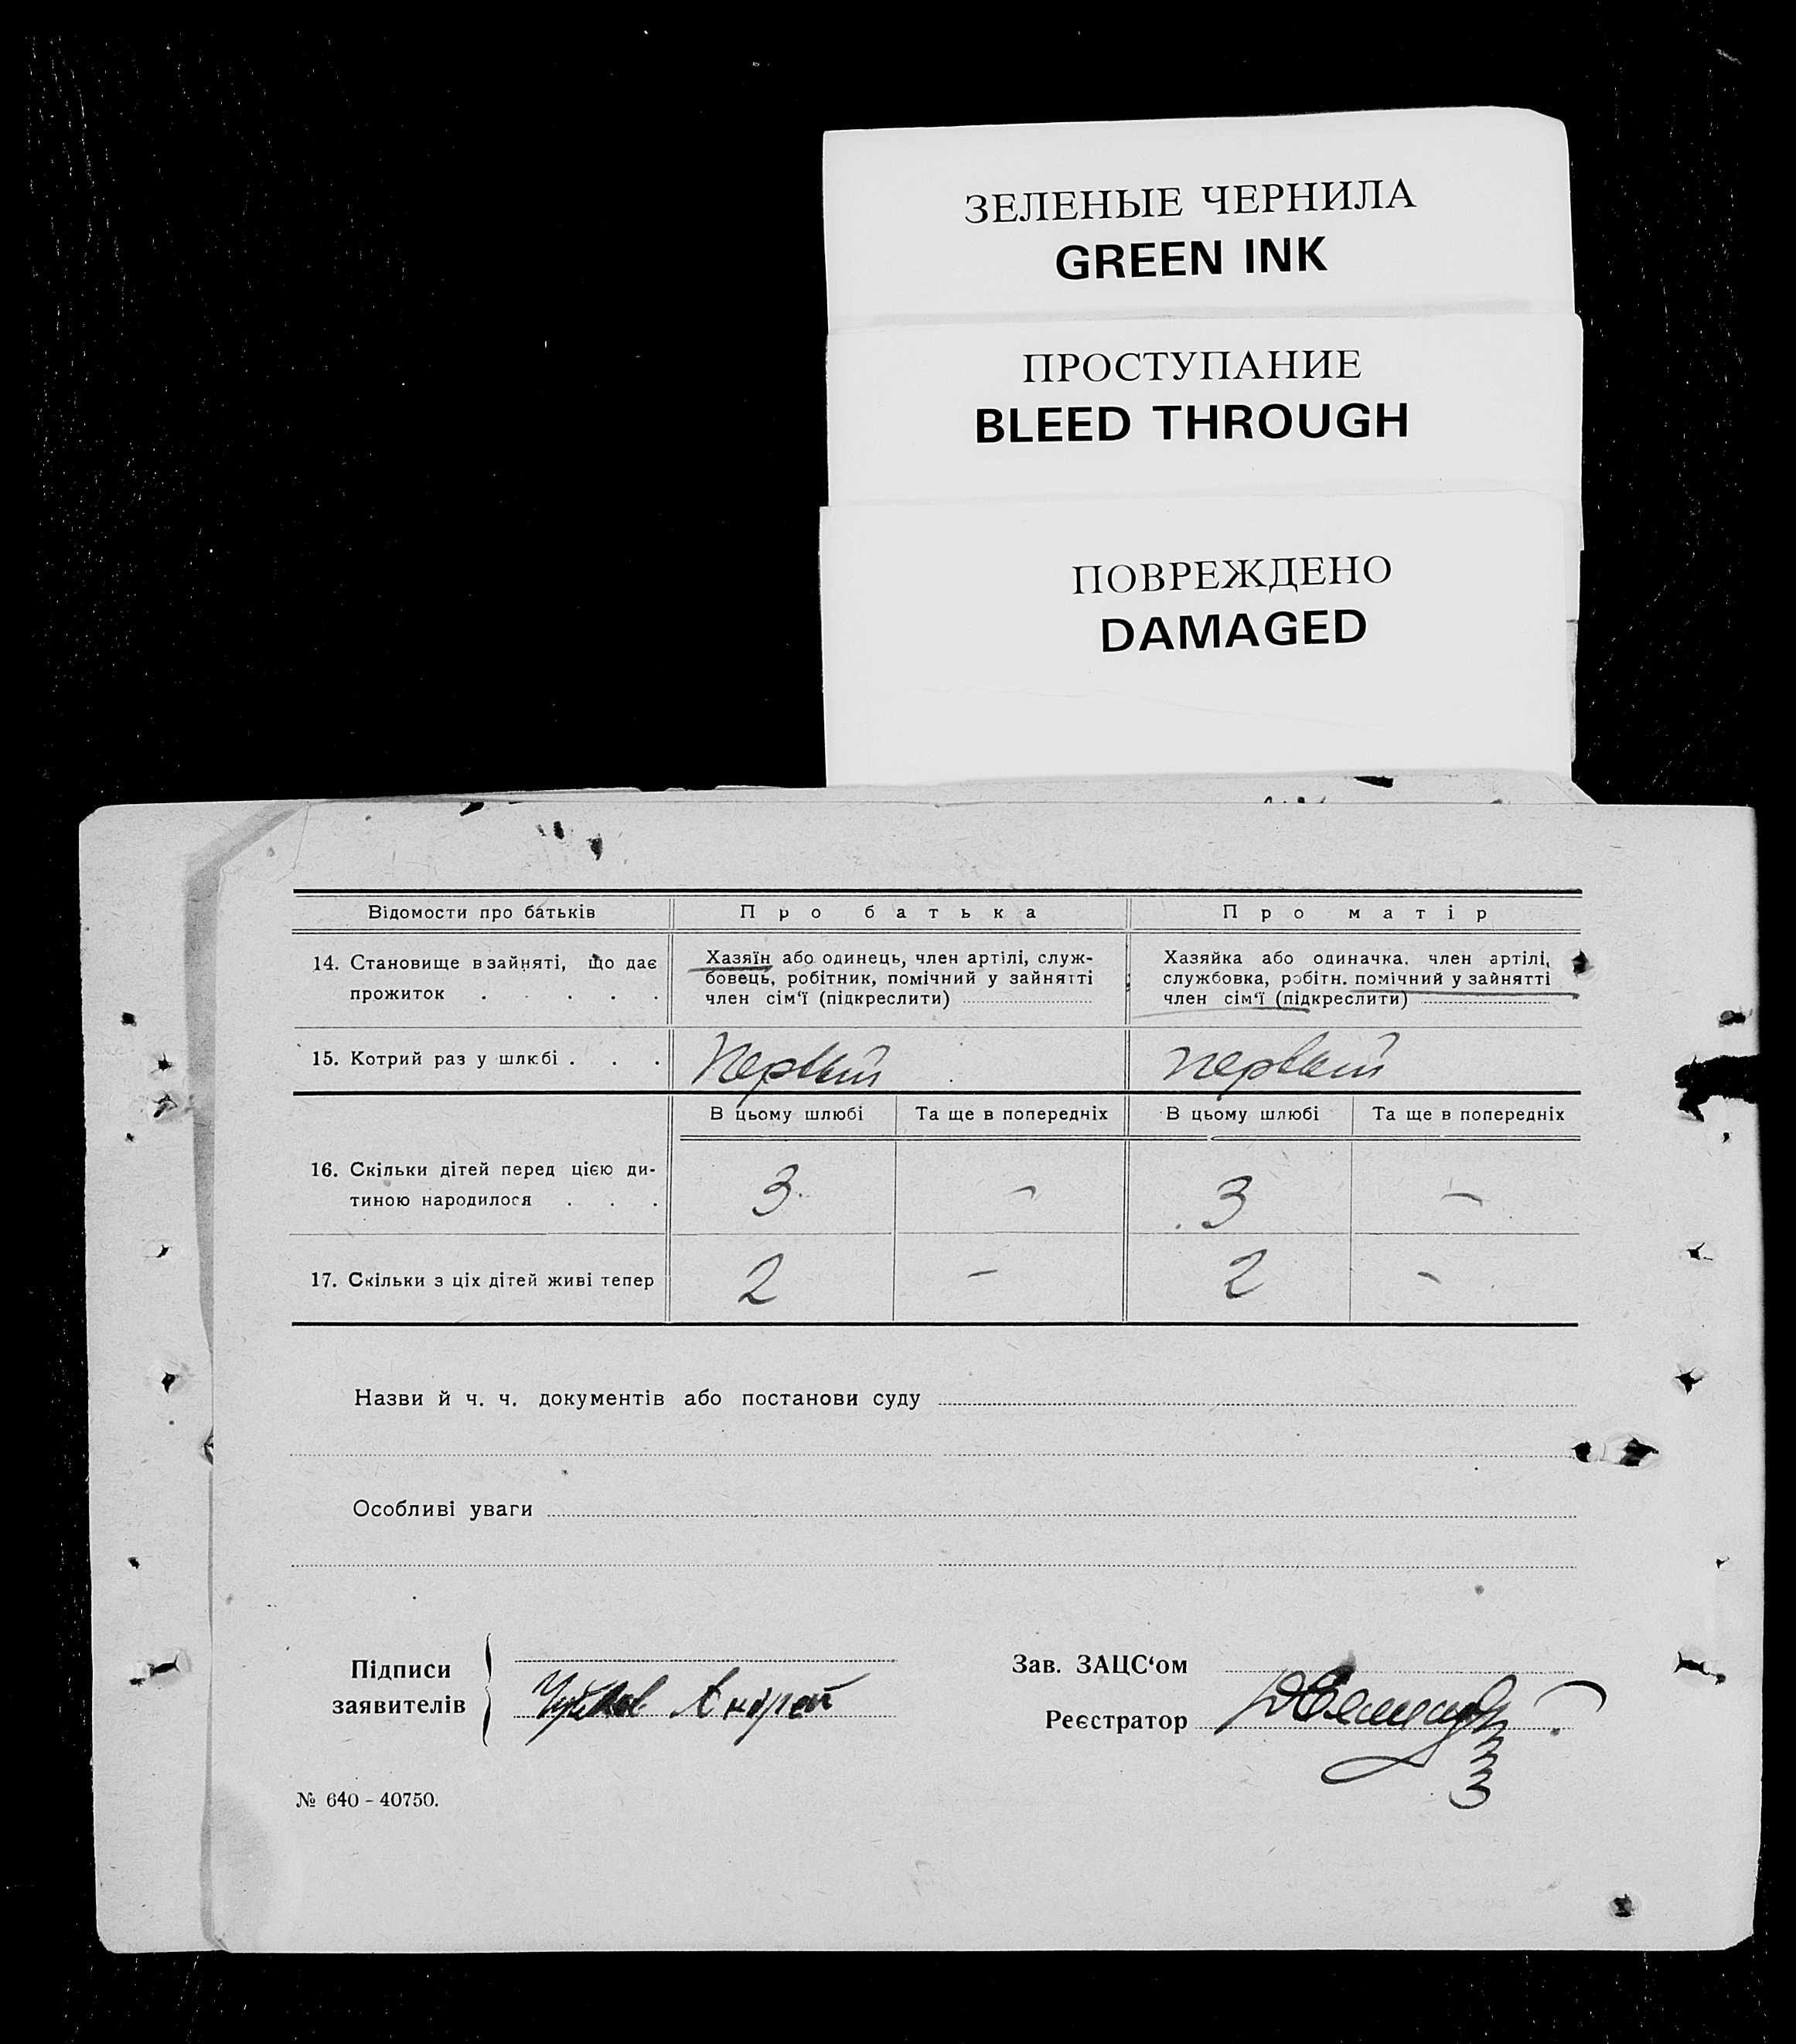 ЗЕЛЕНЫЕ ЧЕРНИЛА
GREEN INK
ПРОСТУПАНИЕ
BLEED THROUGH
ПОВРЕЖДЕНО
DAMAGED
Відомости про батьків
Про батька
Про матір
14. Становище в зайняті, що дає
прожиток . . . . .
Хазяїн або одинець, член артілі, служ-
бовець, робітник, помічний у зайнятті
член сім‘ї (підкреслити)
Хазяйка або одиначка. член артілі,
службовка, робітн. помічний у зайнятті
член сім‘ї (підкреслити)
15. Котрий раз у шлюбі . . .
Первый
первый
В цьому шлюбі
Та ще в попередніх
В цьому шлюбі
Та ще в попередніх
16. Скільки дітей перед цією ди-
тиною народилося . . .
3
–
3
–
17. Скільки з ціх дітей живі тепер
2
–
2
–
Назви й ч. ч. документів або постанови суду
Особливі уваги
Підписи
заявителів
Андрей
Зав. ЗАЦС‘ом
Реєстратор
№ 640 - 40750.